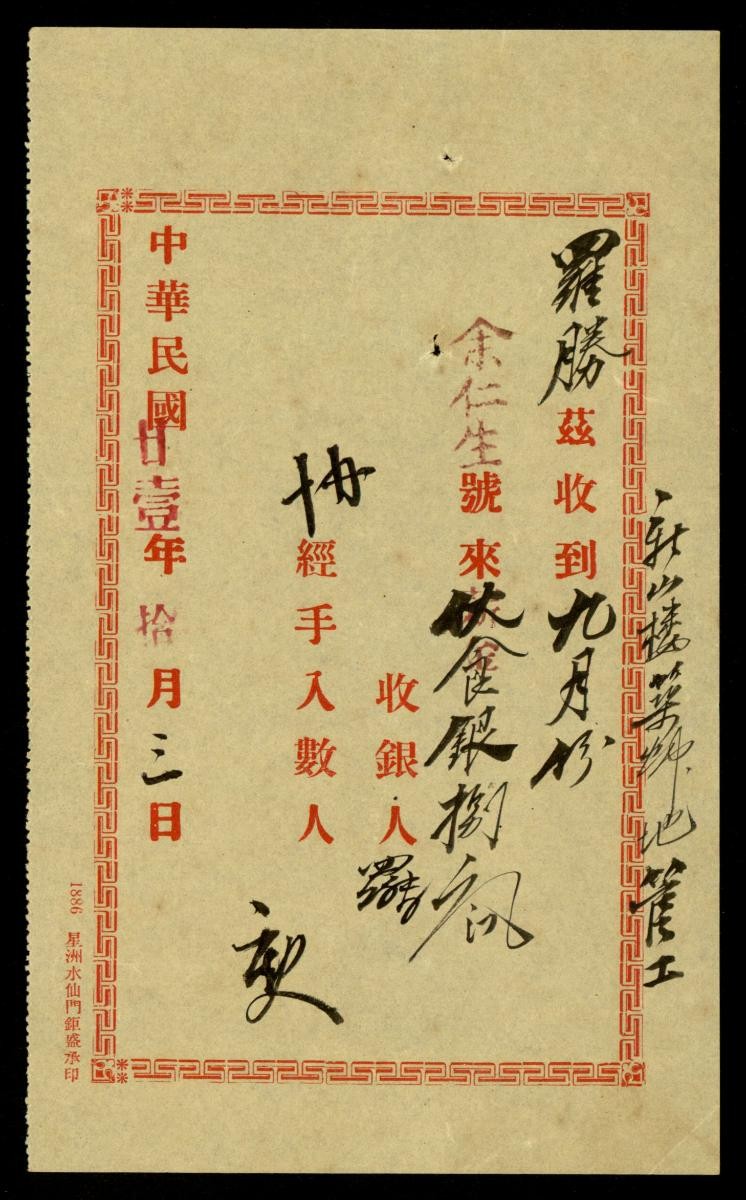 新山楼 地管工
羅勝茲收到九月份
余仁生號來伙食銀捌
收銀人
經手入數人
中華民國廿壹年拾月三日
1886 星洲水仙門鉅盛承印